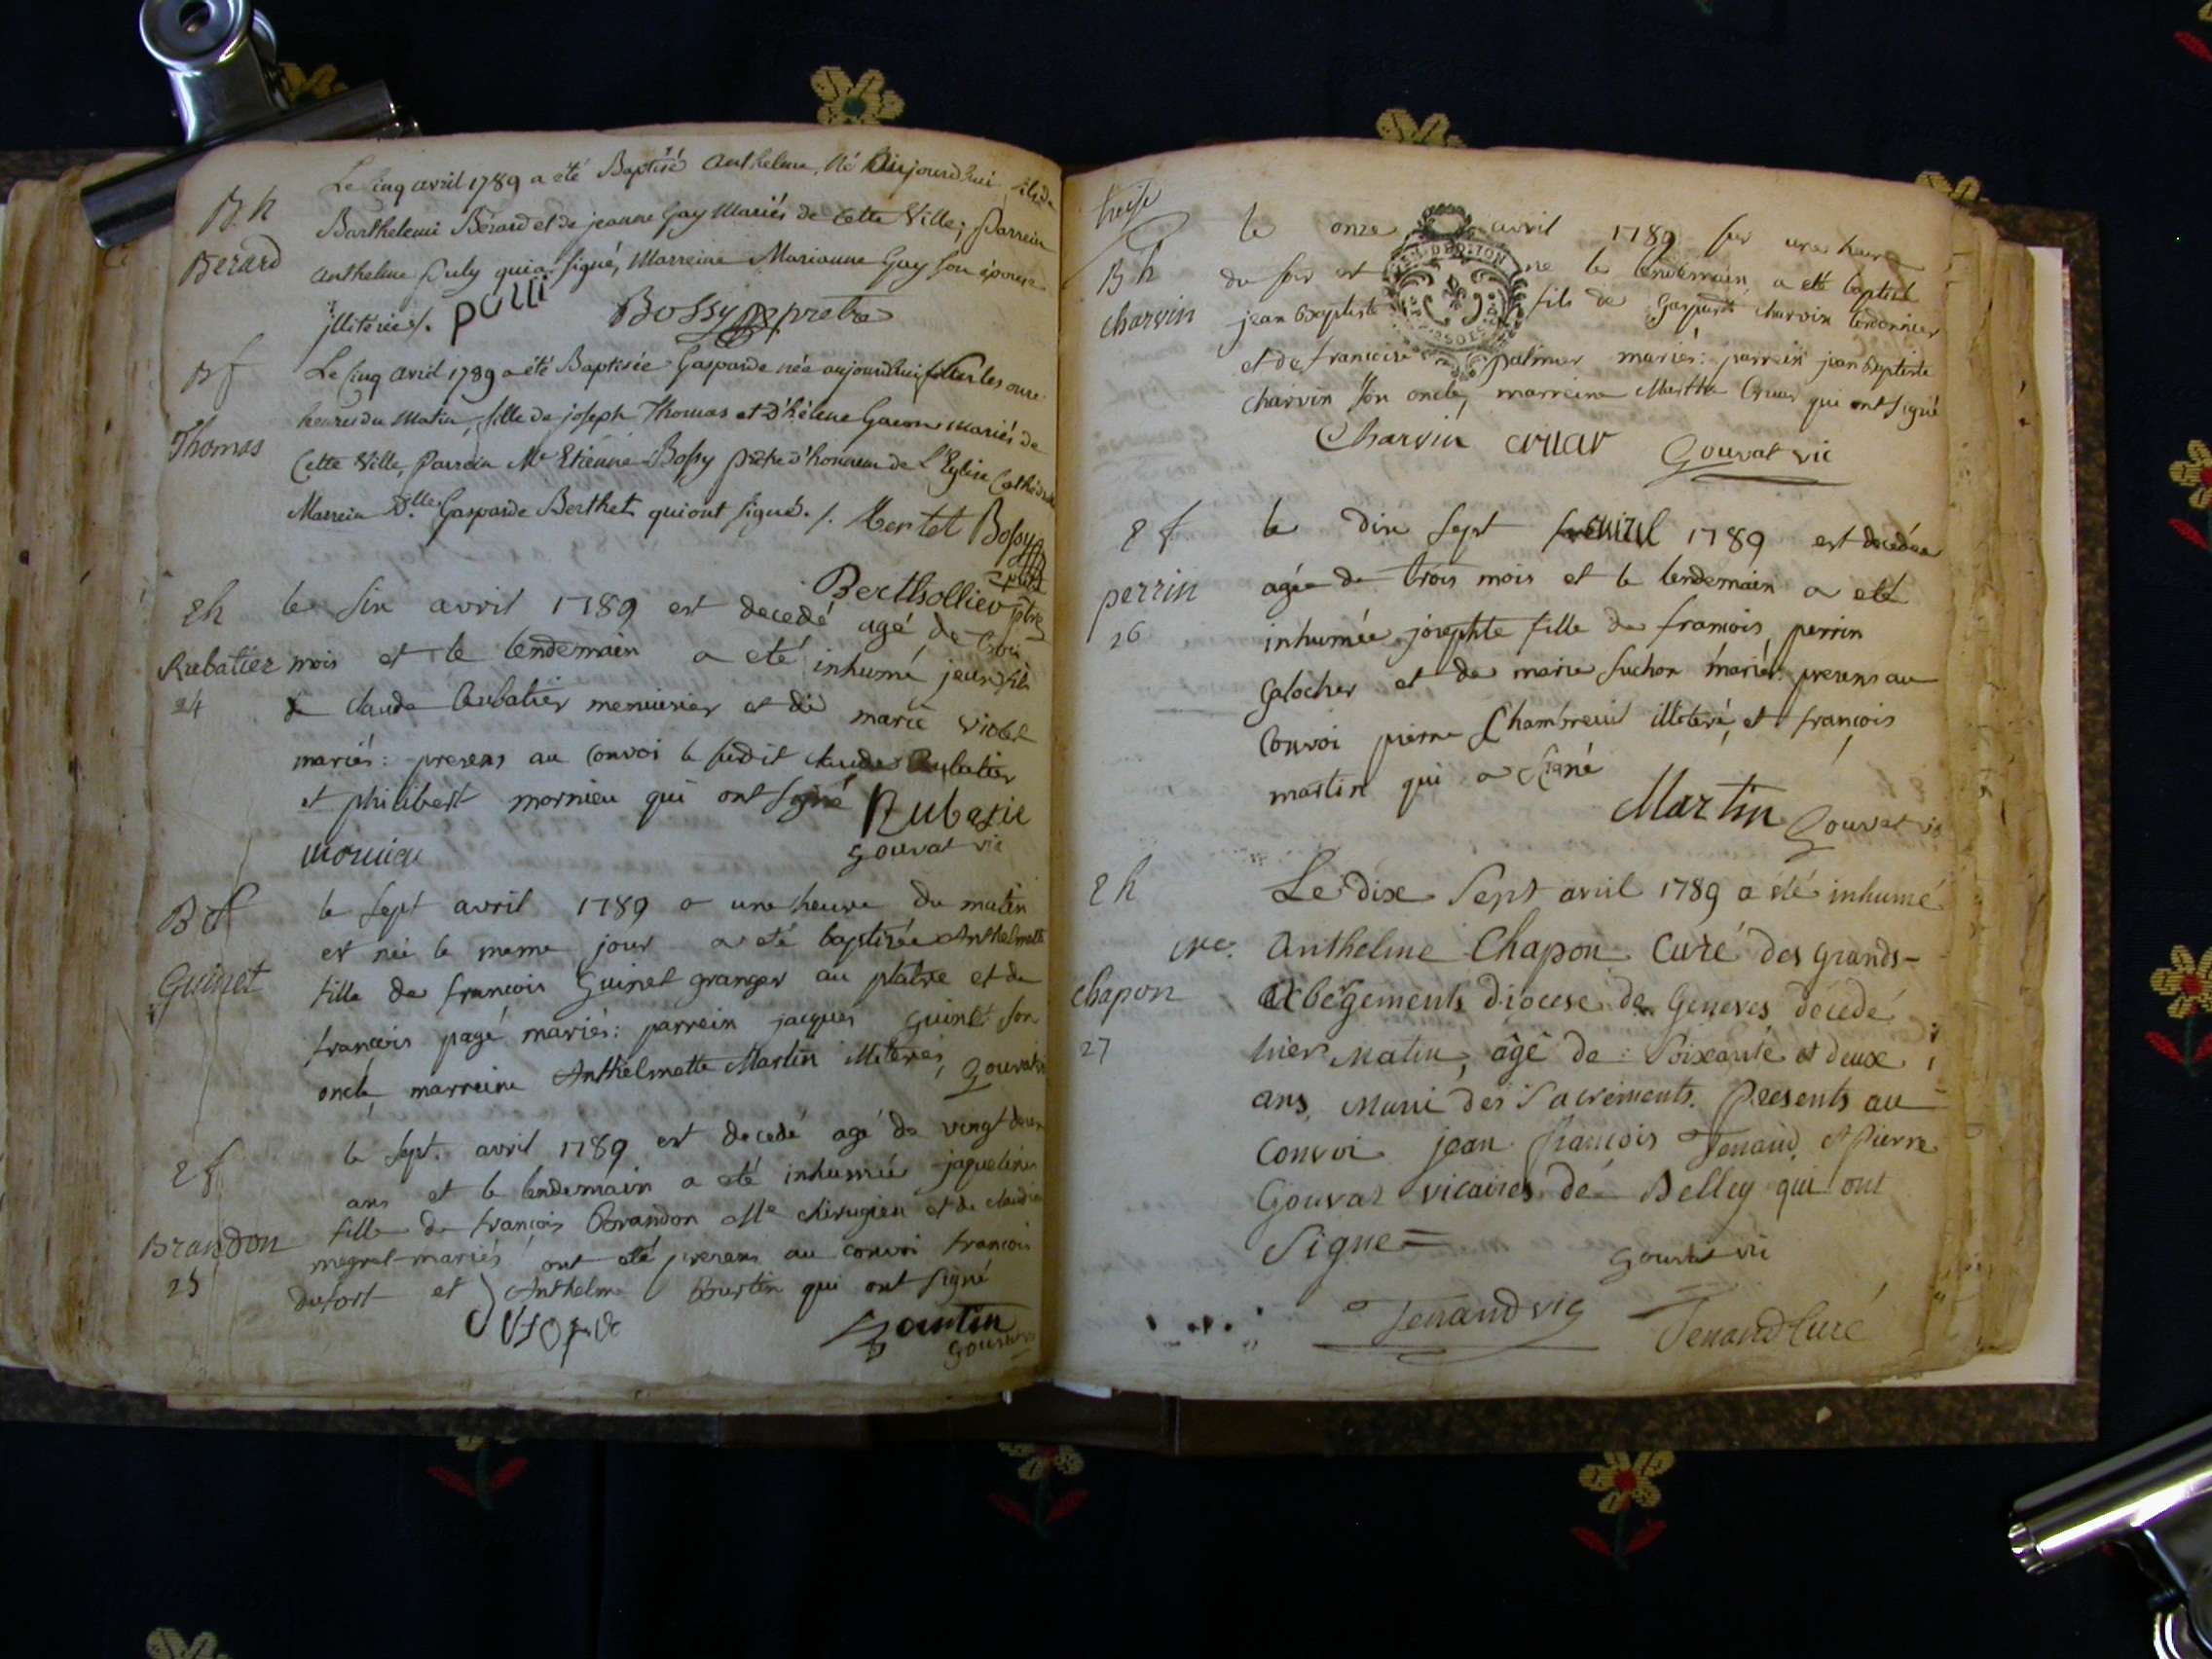 Le cinq avril 1789 a été Baptisé Anthelme, né Aujourd'hui fils de
B. h
Barthelemi Bérard et de jeanne Gay Mariés de cette Ville; Parrein
Berard
Anthelme puly qui a signé, Marreine Marianne Gay son épouse
jlliterée ./.
Bossy pretre
B f
Le cinq Avril 1789 a été Baptisée Gasparde née aujourdhui les onze
heures du Matin, fille de joseph Thomas et d'hélene Gacon mariés de
Thomas
Cette Ville, Parrein Me Etienne Bossy prêtre d'honneur de l'Eglise Cathédrale
Marrein Dlle Gasparde Berthet qui ont signé. /. Bertet Bossy
Berthollier ptre
2 h
le six avril 1789 est decedé agé de trois
Rubatier
mois et le lendemain a eté inhumé jean fils
24
de claude Rubatier menuisier et de marie violet
mariés: presens au convoi le susdit claude Rubatier
et philibert mornieu qui ont signé Rubatie
mornieu
gouvat vic
B f
le sept avril 1789 a une heure du matin
est née le meme jour a eté baptisée Anthelmette
Guinet
fille de francois Guinet granger au platre et de
francois pagé mariés: parrein jacques guinet son
oncle, marreine Anthelmette Martin illiterés, gouvat
2 f
le sept. avril 1789 est decedé agé de vingt deux
ans et le lendemain a eté inhumée jaqueline
Brandon
fille de françois Brandon Me chirugien et de claudine
25
megret mariés ont eté presens au convoi francois
dufort et Anthelme Bourtin qui ont signé
gouvat
treize
le onze avril 1789 sur une heure
B h
du soir est né le lendemain, a eté baptisé
charvin
jean baptiste fils de Gaspard charvin cordonnier
et de francoise palmier mariés: parrein jean baptiste
charvin son oncle, marreine Marthe Cruar qui ont signé
Charvin cruar Gouvat vic
2 f
le dix sept avril 1789 est decedée
perrin
agée de trois mois et le lendemain a eté
26
inhumée josephte fille de francois perrin
galocher et de marie suchon mariés. presens au
Convoi pierre Chambreuil illiteré, et françois
martin qui a signé
Martin Gouvat vic
2 h
Le dix Sept avril 1789 a été inhumé
Mre. Anthelme Chapon Curé des Grands-
chapon
Abergements diocese de Geneves décedé
27
hier Matin, âgé de Soixante et deux
ans, Muni des Sacrements. Presents au
Convoi jean françois Tenand, et Pierre
Gouvat vicaires de Belley qui ont
Signe =
Gouvat vic
Tenand vic Tenand Curé